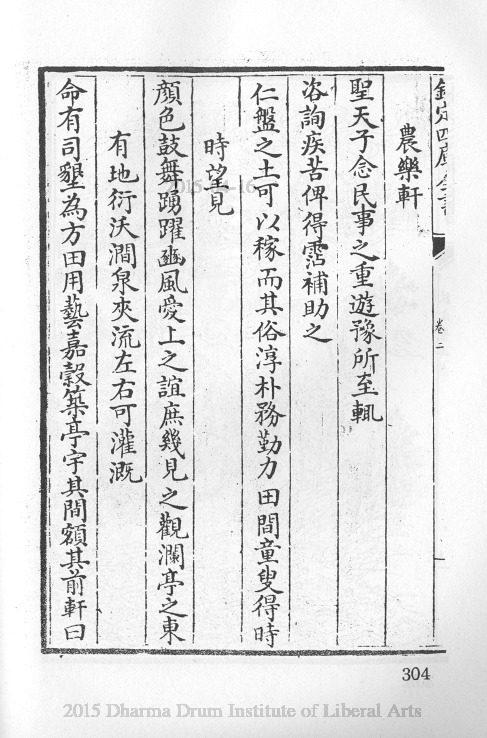 欽定四庫全書
卷二
農樂軒
聖天子念民事之重遊豫所至輒
咨詢疾苦俾得霑補助之
仁盤之土可以稼而其俗淳朴務勤力田間童叟得時
時望見
顏色鼓舞踴躍豳風愛上之誼庶幾見之觀瀾亭之東
有地衍沃澗泉夾流左右可灌溉
命有司墾為方田用藝嘉榖築亭宇其間額其前軒曰
304
2015 Dharma Drum Institute of Liberal Arts